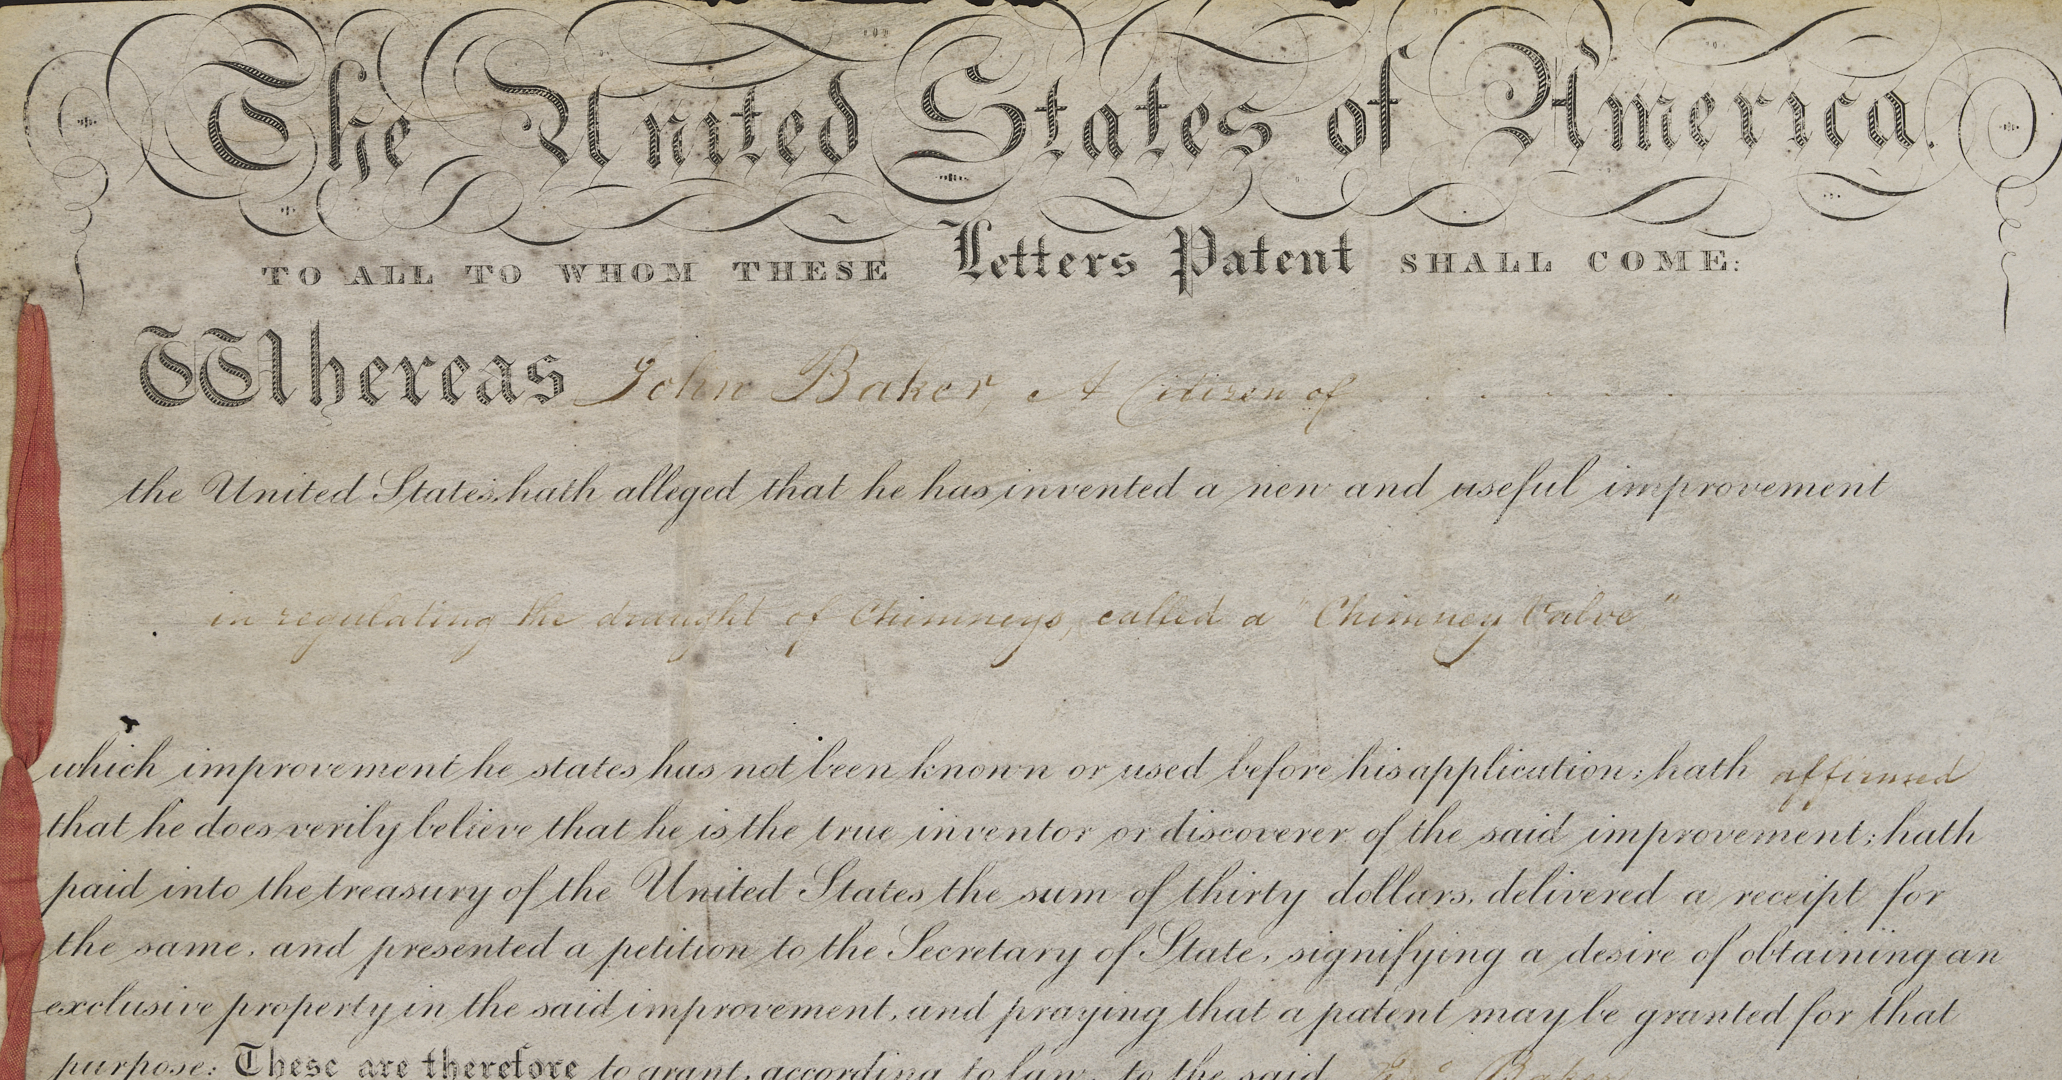 The United States of America.
TO ALL TO WHOM THESE Letters Patent SHALL COME:
Whereas John Baker, A Citizen of
the United States, hath alleged that he has invented a new and useful improvement
in regulating the draught of Chimneys, called a "Chimney Valve"
which improvement he states has not been known or used before his application; hath affirmed
that he does verily believe that he is the true inventor or discoverer of the said improvement; hath
paid into the treasury of the United States the sum of thirty dollars, delivered a receipt for
the same, and presented a petition to the Secretary of State, signifying a desire of obtaining an
exclusive property in the said improvement, and praying that a patent may be granted for that
purpose: These are therefore to grant, according to law, to the said Jno Baker